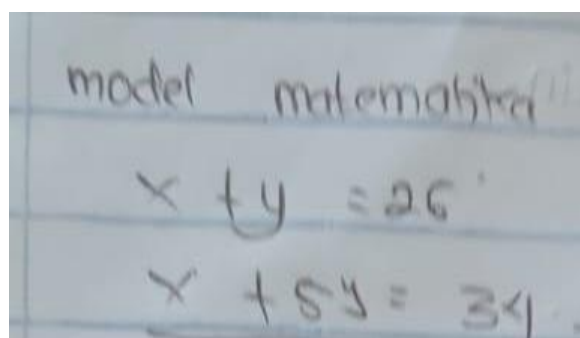 model matematika
x + y = 26
x + 5y = 34